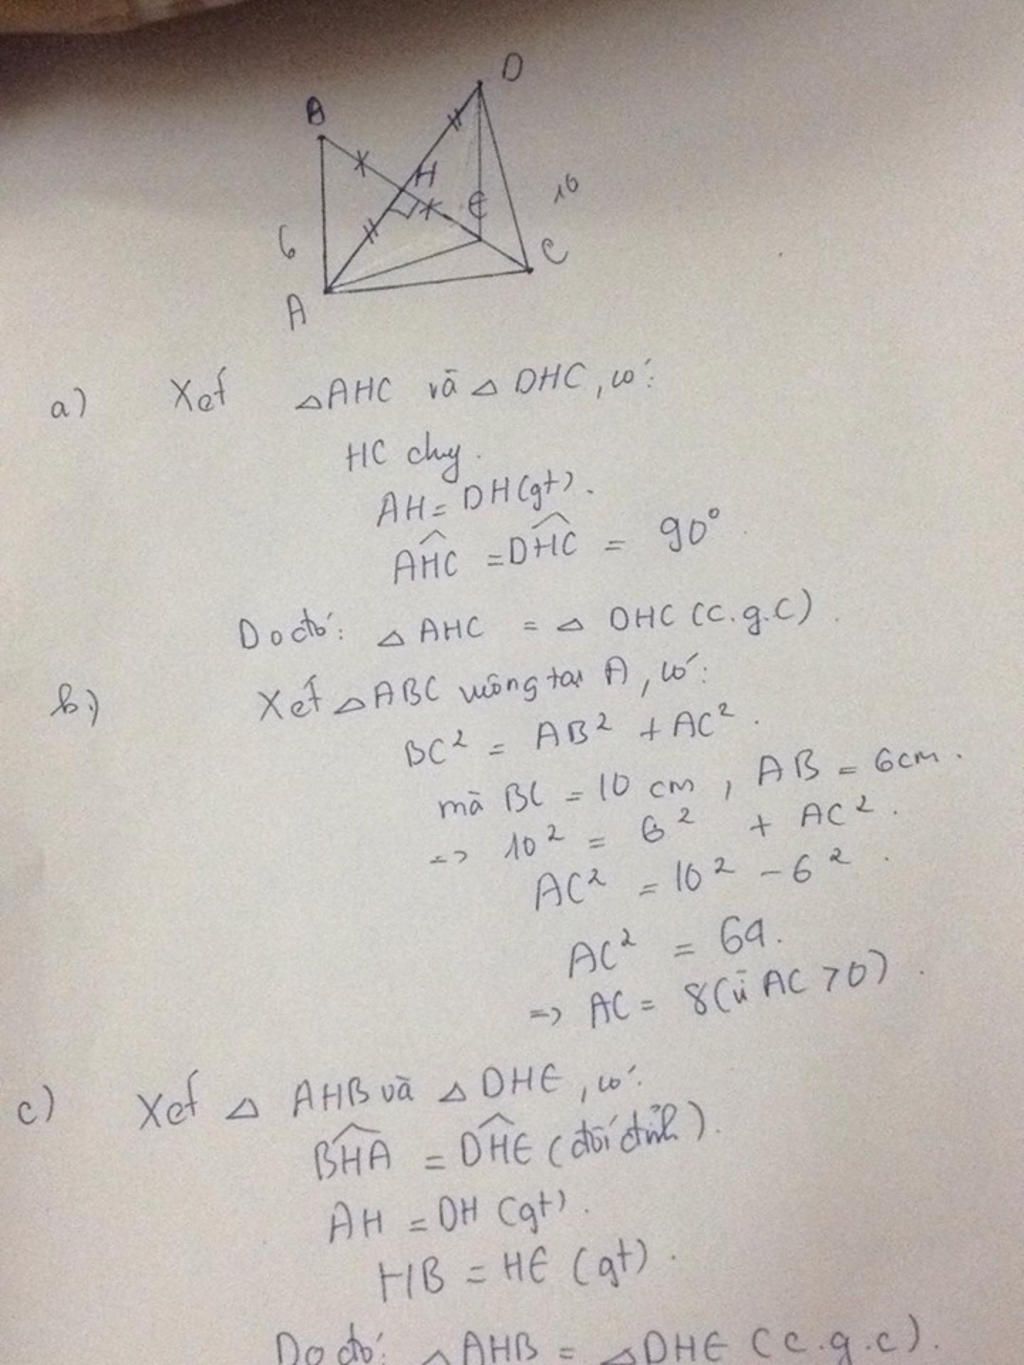 D
B
H
E
10
6
C
A
a) Xét △AHC và △DHC, có:
HC chung.
AH = DH (gt).
AHC = DHC = 90°
Do đó: △AHC = △DHC (c.g.c).
b.) Xét △ABC vuông tại A, có:
BC² = AB² + AC².
mà BC = 10 cm, AB = 6cm.
=> 10² = 6² + AC².
AC² = 10² - 6².
AC² = 64.
=> AC = 8 (vì AC > 0).
c) Xét △AHB và △DHE, có:
BHA = DHE (đối đỉnh).
AH = DH (gt).
HB = HE (gt).
Do đó: △AHB = △DHE (c.g.c).